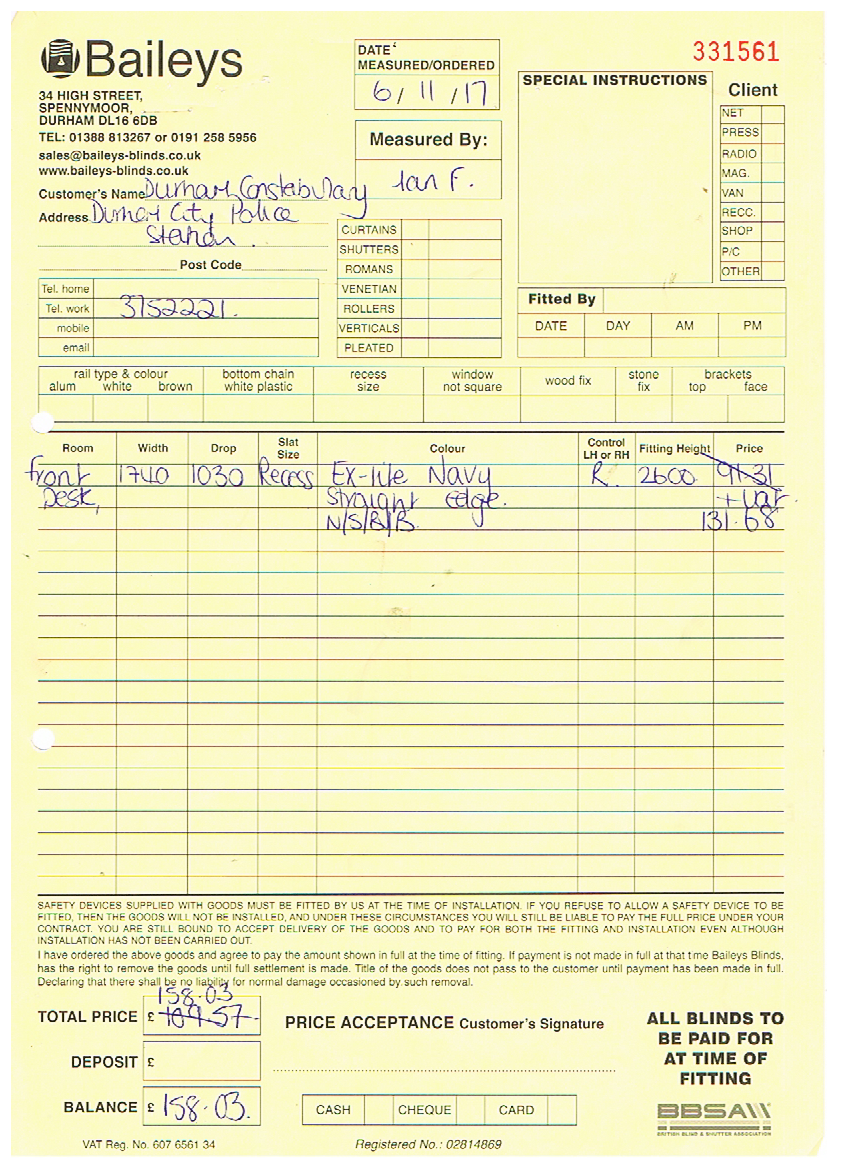 Baileys
34 HIGH STREET,
SPENNYMOOR,
DURHAM DL16 6DB
TEL: 01388 813267 or 0191 258 5956
sales@baileys-blinds.co.uk
www.baileys-blinds.co.uk
Customer's Name Durham Constabulary
Address Durham City Police
Station.
Post Code
Tel. home
Tel. work 3752221.
mobile
email
DATE
MEASURED/ORDERED
6/11/17
Measured By:
Ian F.
CURTAINS
SHUTTERS
ROMANS
VENETIAN
ROLLERS
VERTICALS
PLEATED
331561
SPECIAL INSTRUCTIONS
Client
NET
PRESS
RADIO
MAG.
VAN
RECC.
SHOP
P/C
OTHER
Fitted By
DATE DAY AM PM
rail type & colour
alum white brown
bottom chain
white plastic
recess
size
window
not square
wood fix
stone
fix
brackets
top face
Room Width Drop Slat Size Colour Control LH or RH Fitting Height Price
front 1740 1030 Recess Ex-lite Navy R. 2600 91.31
Desk, straight edge. + vat.
N/S/B/B. 131.68
SAFETY DEVICES SUPPLIED WITH GOODS MUST BE FITTED BY US AT THE TIME OF INSTALLATION. IF YOU REFUSE TO ALLOW A SAFETY DEVICE TO BE
FITTED, THEN THE GOODS WILL NOT BE INSTALLED, AND UNDER THESE CIRCUMSTANCES YOU WILL STILL BE LIABLE TO PAY THE FULL PRICE UNDER YOUR
CONTRACT. YOU ARE STILL BOUND TO ACCEPT DELIVERY OF THE GOODS AND TO PAY FOR BOTH THE FITTING AND INSTALLATION EVEN ALTHOUGH
INSTALLATION HAS NOT BEEN CARRIED OUT.
I have ordered the above goods and agree to pay the amount shown in full at the time of fitting. If payment is not made in full at that time Baileys Blinds,
has the right to remove the goods until full settlement is made. Title of the goods does not pass to the customer until payment has been made in full.
Declaring that there shall be no liability for normal damage occasioned by such removal.
158.03
TOTAL PRICE £ 109.57
DEPOSIT £
BALANCE £ 158.03.
PRICE ACCEPTANCE Customer's Signature
CASH CHEQUE CARD
ALL BLINDS TO
BE PAID FOR
AT TIME OF
FITTING
BBSA
BRITISH BLIND & SHUTTER ASSOCIATION
VAT Reg. No. 607 6561 34
Registered No.: 02814869